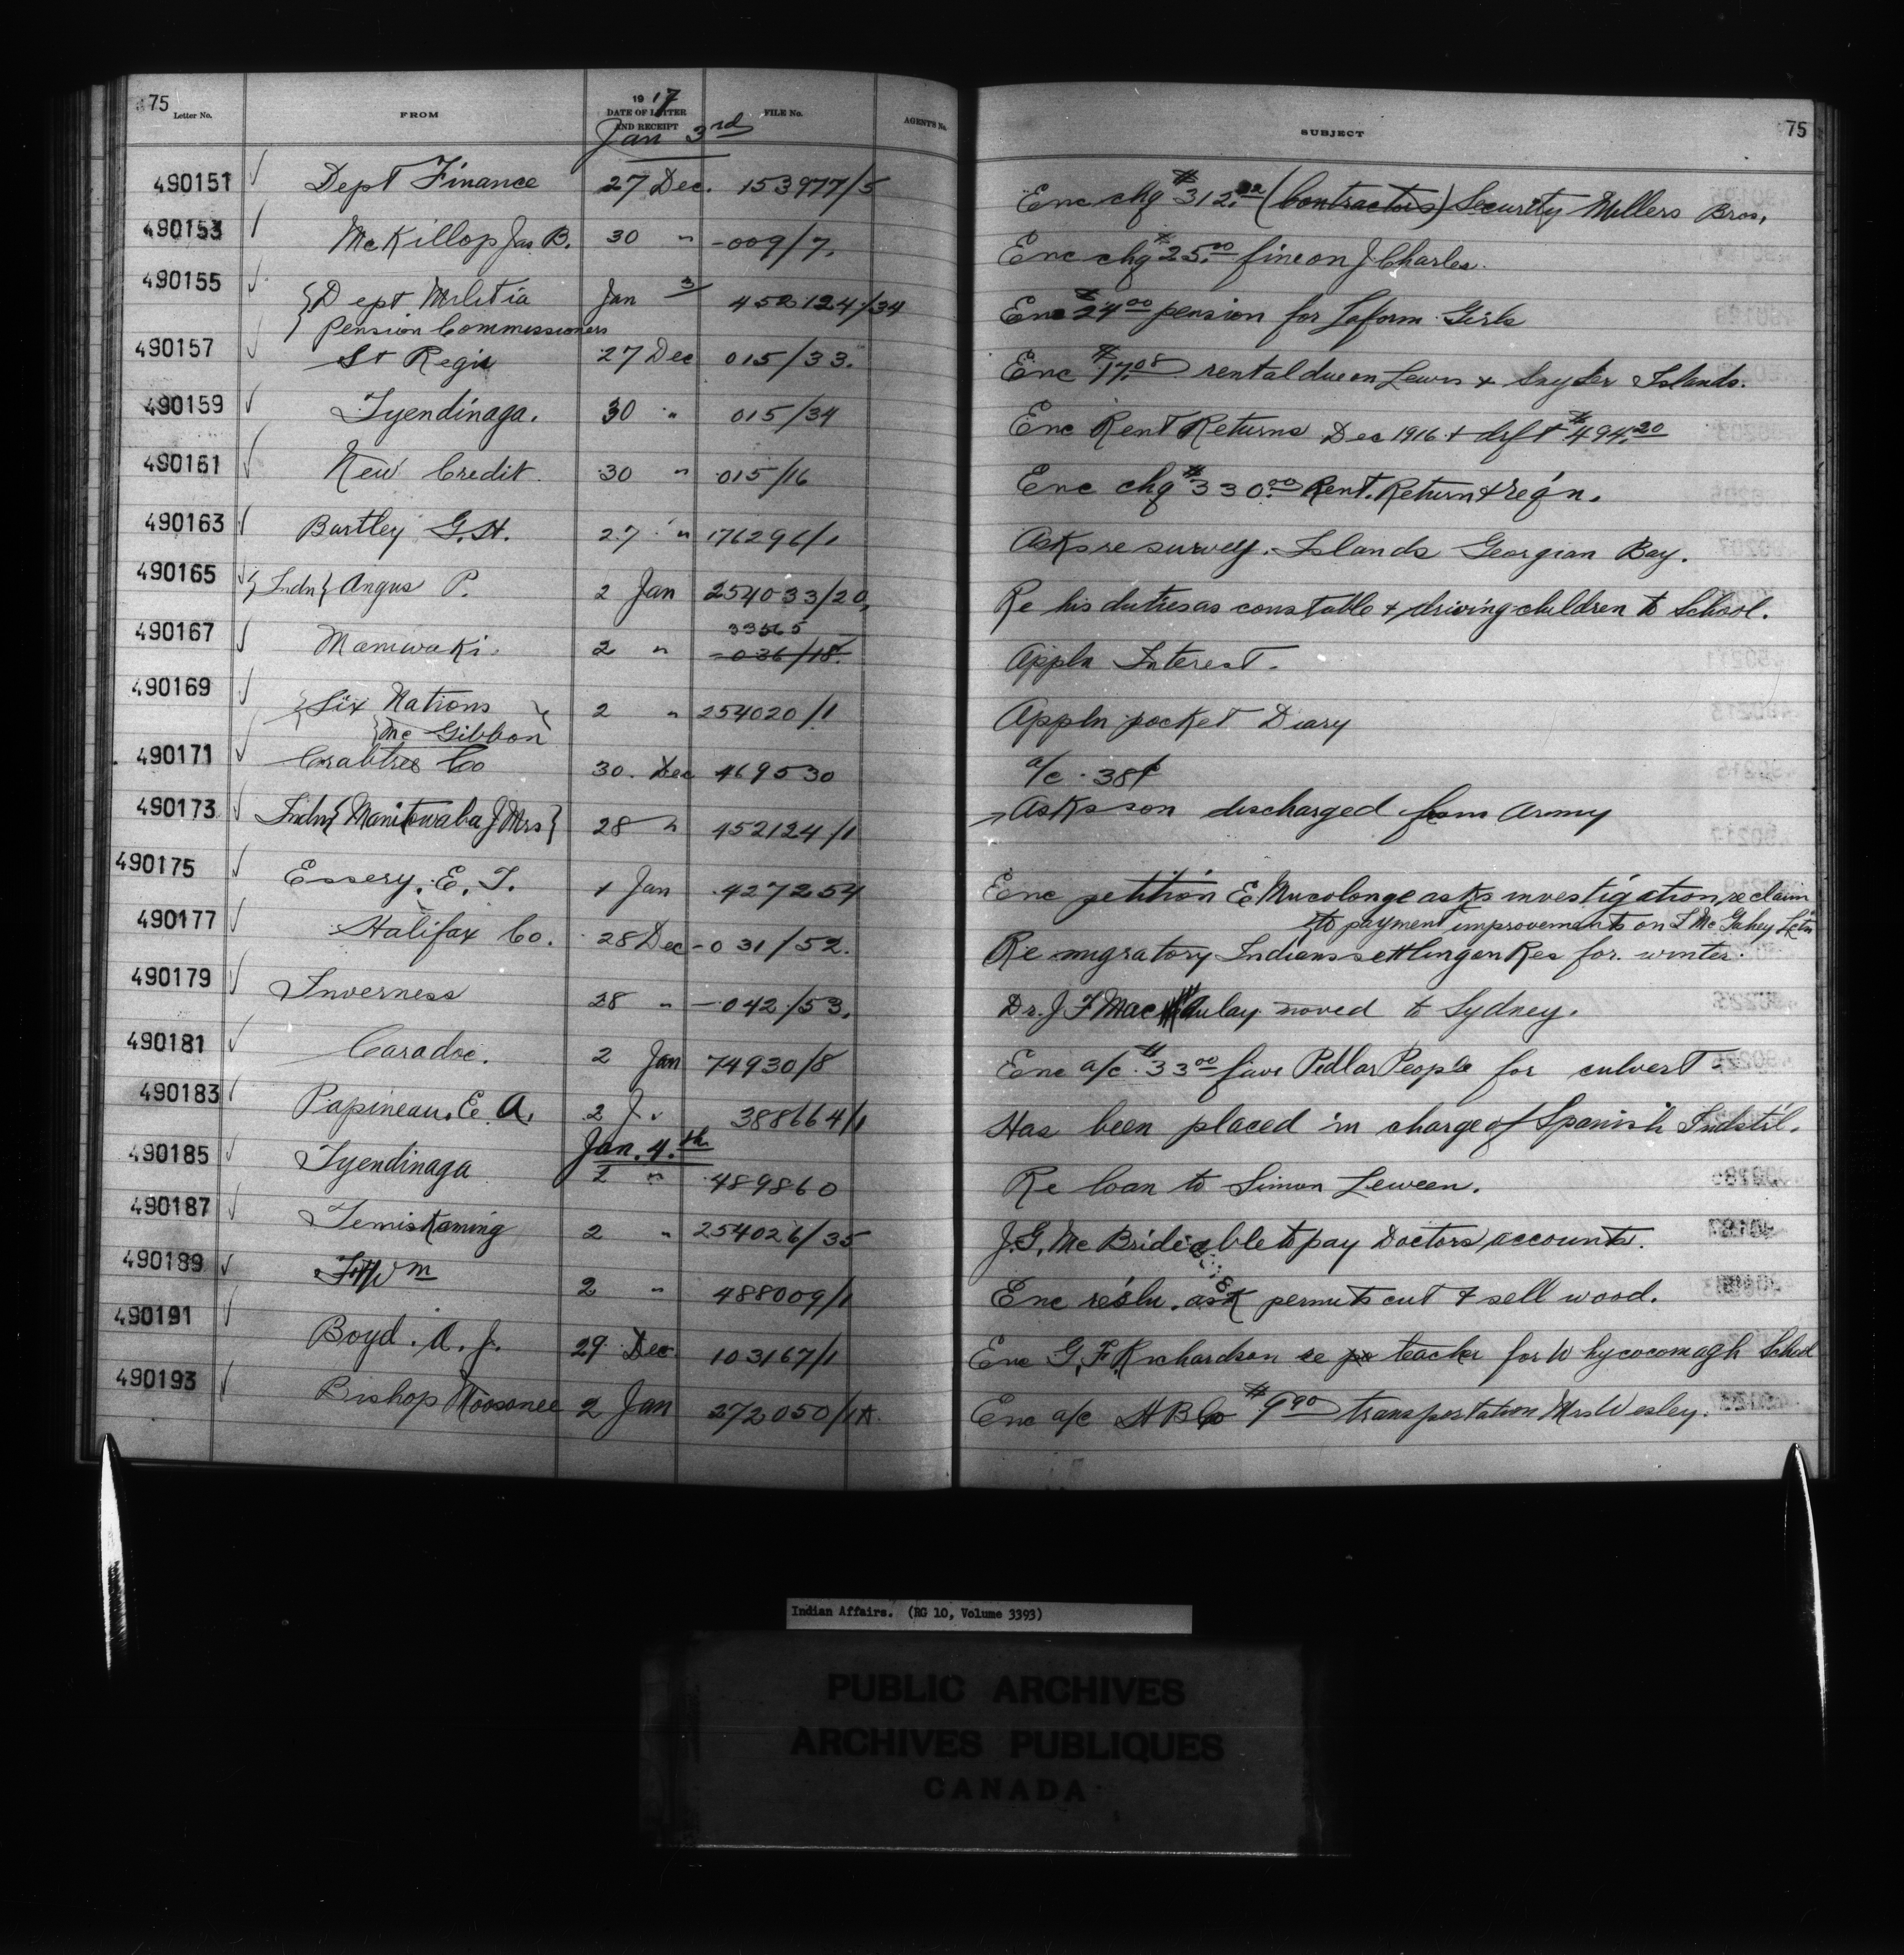 75 Letter No. FROM 1917 DATE OF LETTER AND RECEIPT FILE No. AGENT'S No. SUBJECT 75
Jan 3rd
490151 ✓ Dept Finance 27 Dec. 153977/5 Enc chq $312. (Contractors) Security Millers Bros,
490153 ✓ McKillop Jas B. 30 " -009/7. Enc chq $25.00 fine on J Charles.
490155 ✓ {Dept Militia Jan 3/ 452124/34 Enc $24.00 pension for Laform Girls
{Pension Commissioners
490157 ✓ St Regis 27 Dec 015/33. Enc $17.08 rental due on Lewis & Snyder Islands.
490159 ✓ Tyendinaga. 30 " 015/34 Enc Rent Returns Dec 1916 & drft $494.20
490161 ✓ New Credit. 30 " 015/16 Enc chq $330.00 Rent. Return & req'n.
490163 ✓ Bartley G.H. 27 " 176296/1 Asks re survey. Islands Georgian Bay.
490165 ✓ {Indn} Angus P. 2 Jan 254033/20, Re his duties as constable & driving children to School.
33565
490167 ✓ Maniwaki. 2 " -036/18. Appln Interest.
490169 ✓ {Six Nations } 2 " 254020/1. Appln pocket Diary
{Mc Gibbon
490171 ✓ Crabtree Co 30. Dec 469530 a/c. 38¢
490173 ✓ Indn {Manitowaba J Mrs} 28 " 452124/1 Asks son discharged from Army
490175 ✓ Essery. E. T. 1 Jan 427254 Enc petition E asks investigation, re claim
to payment improvements on L
490177 ✓ Halifax Co. 28 Dec -031/52. Re migratory Indians settling on Res for winter.
490179 ✓ Inverness 28 " -042/53. Dr. J F MacAulay moved to Sydney.
490181 ✓ Caradoc. 2 Jan 74930/8 Enc a/c. $33.00 favr Pedlar People for culvert
490183 ✓ Papineau. E. A. 2 J. " 388664/1 Has been placed in charge of Spanish Indstil.
Jan. 4.th
490185 ✓ Tyendinaga 2 " 489860 Re loan to Simon Leween.
490187 ✓ Temiskaming 2 " 254026/35 J.G. McBride able to pay Doctors accounts.
490189 ✓ Ft Wm 2 " 488009/1 Enc resln. ask permits cut & sell wood.
490191 ✓ Boyd. A. J. 29 Dec. 103167/1 Enc G. F. Richardson re teacher for Whycocomagh School
490193 ✓ Bishop Moosonee 2 Jan 272050/1A. Enc a/c H B Co $9.90 transportation Mrs Wesley.
Indian Affairs. (RG 10, Volume 3393)
PUBLIC ARCHIVES
ARCHIVES PUBLIQUES
CANADA